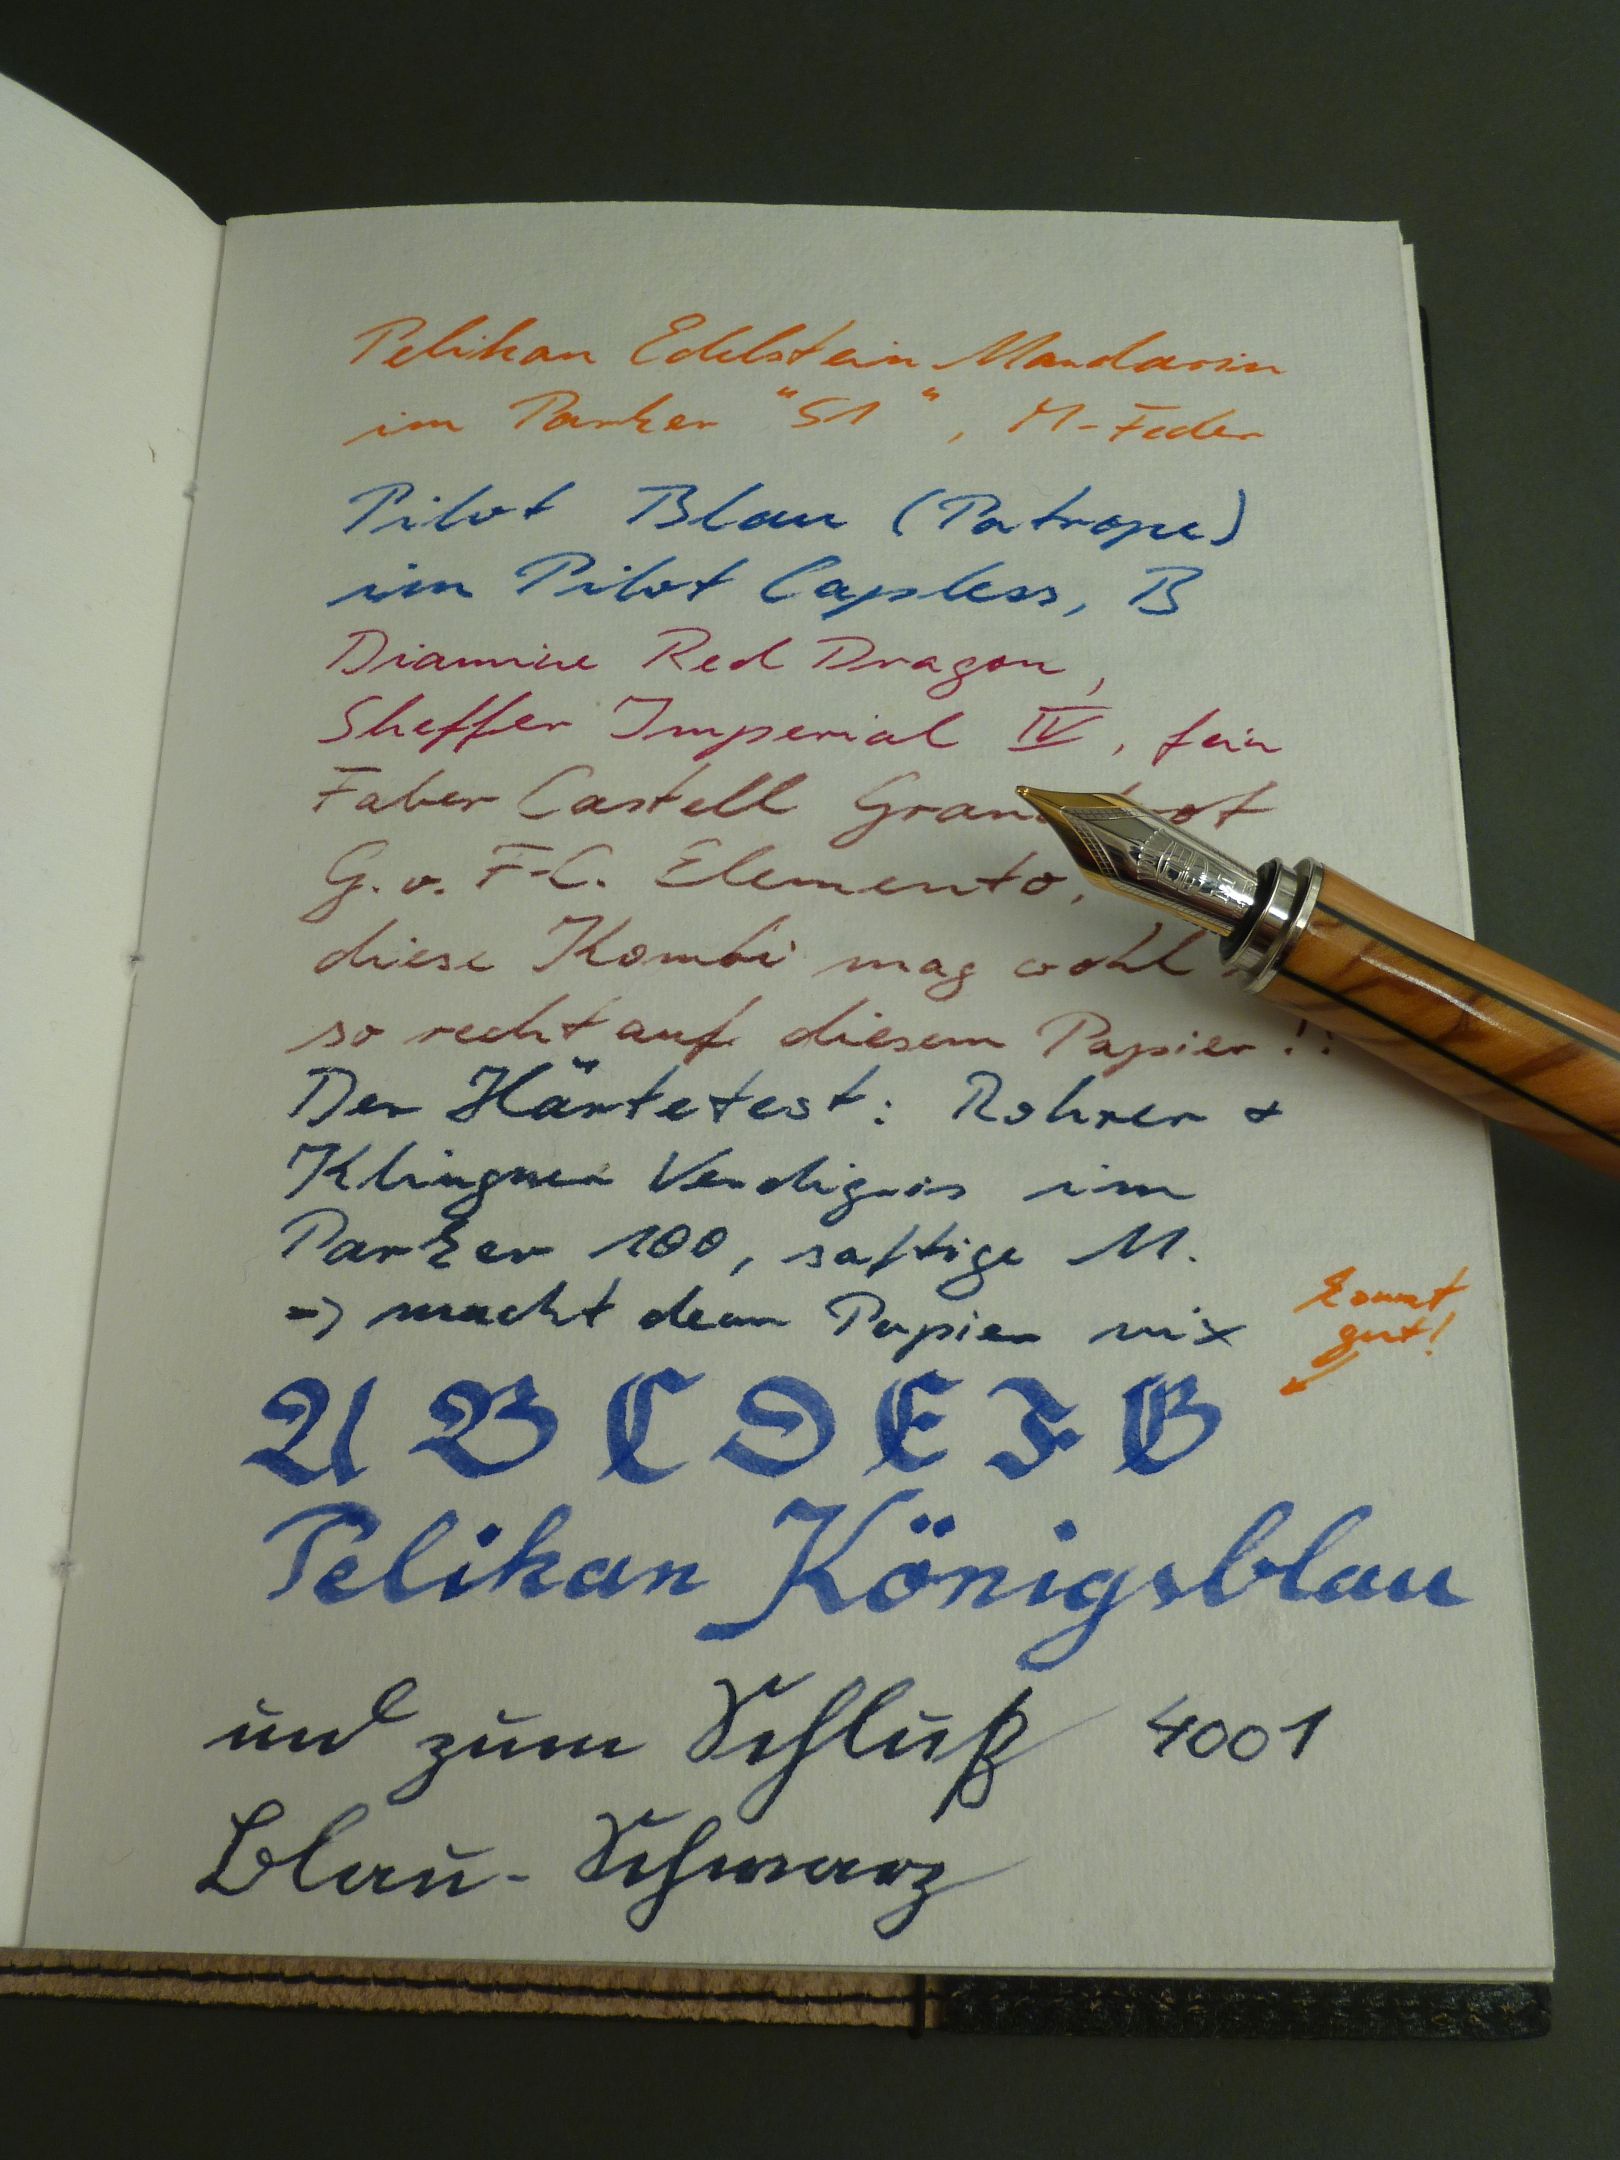 Pelikan Edelstein Mandarin
im Parker "51", M-Feder
Pilot Blau (Patrope)
im Pilot Capless, B
Diamine Red Dragon,
Sheffer Imperial IV, fein
Faber Castell Gran rot
G. v. F-C. Elemento,
diese Kombi mag wohl
so recht auf diesem Papier!!
Der Härtetest: Rohrer &
Klingner Verdigris im
Parker 100, saftige M.
=> macht dem Papier nix
kommt
gut!
A B C D E F G
Pelikan Königsblau
und zum Schluß 4001
Blau-Schwarz